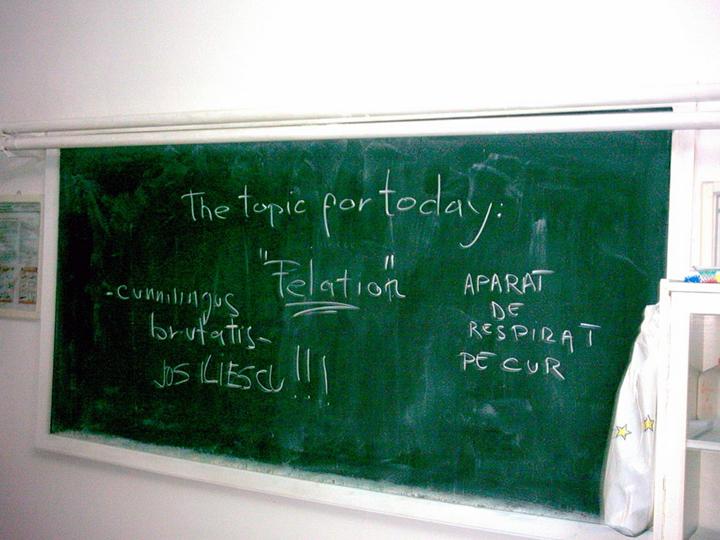 The topic for today:
"Felation"
-cunnilingus
brutatis-
JOS ILIESCU!!!
APARAT
DE
RESPIRAT
PE CUR